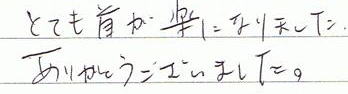 とても首が楽になりました。
ありがとうございました。